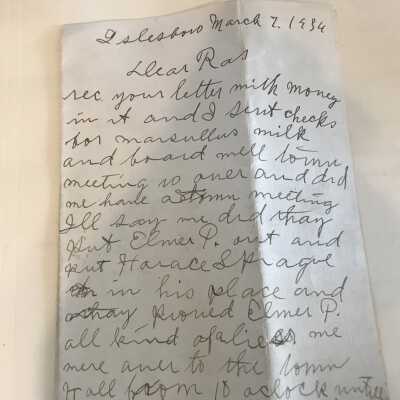 Islesboro March 7. 1934
Dear Ras
rec your letter with money
in it and I sent checks
for marsullus milk
and board well town
meeting is over and did
we have a town meeting
Ill say we did thay
put Elmer P. out and
put Horace Sprague
in his place and
thay proved Elmer P.
all kind of a lies we
were over to the town
Hall from 10 aclock untill